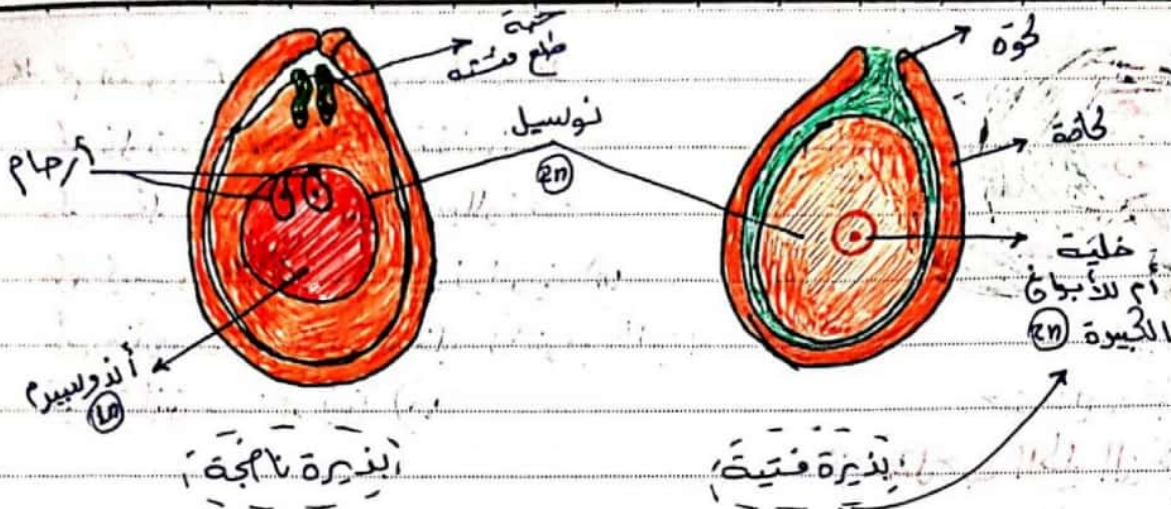 حبة
طلع منتشة
كوة
نوسيل
2n
لحافة
أرحام
خلية
أم للأبواغ
الكبيرة 2n
أندوسبيرم
1n
بذيرة ناضجة
بذيرة فتية